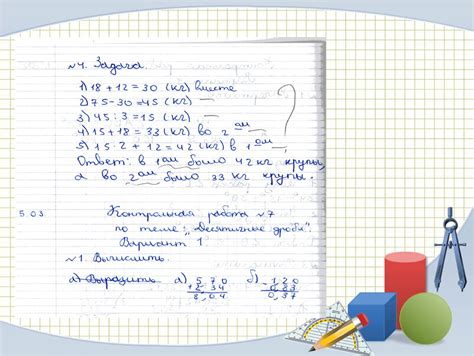 №4. Задача
1) 18 + 12 = 30 (кг) вместе
2) 75 - 30 = 45 (кг)
3) 45 : 3 = 15 (кг)
4) 15 + 18 = 33 (кг) во 2 ом
5) 15 · 2 + 12 = 42 (кг) в 1 ом
?
Ответ: в 1 ом было 42 кг крупы,
а во 2 ом было 33 кг крупы.
5.03 Контрольная работа №7
по теме: „Десятичные дроби".
Вариант 1
№1. Вычислить.
а) Выразить а) 5,70 б) 1,20
+ 2,34 - 0,83
8,04 0,37